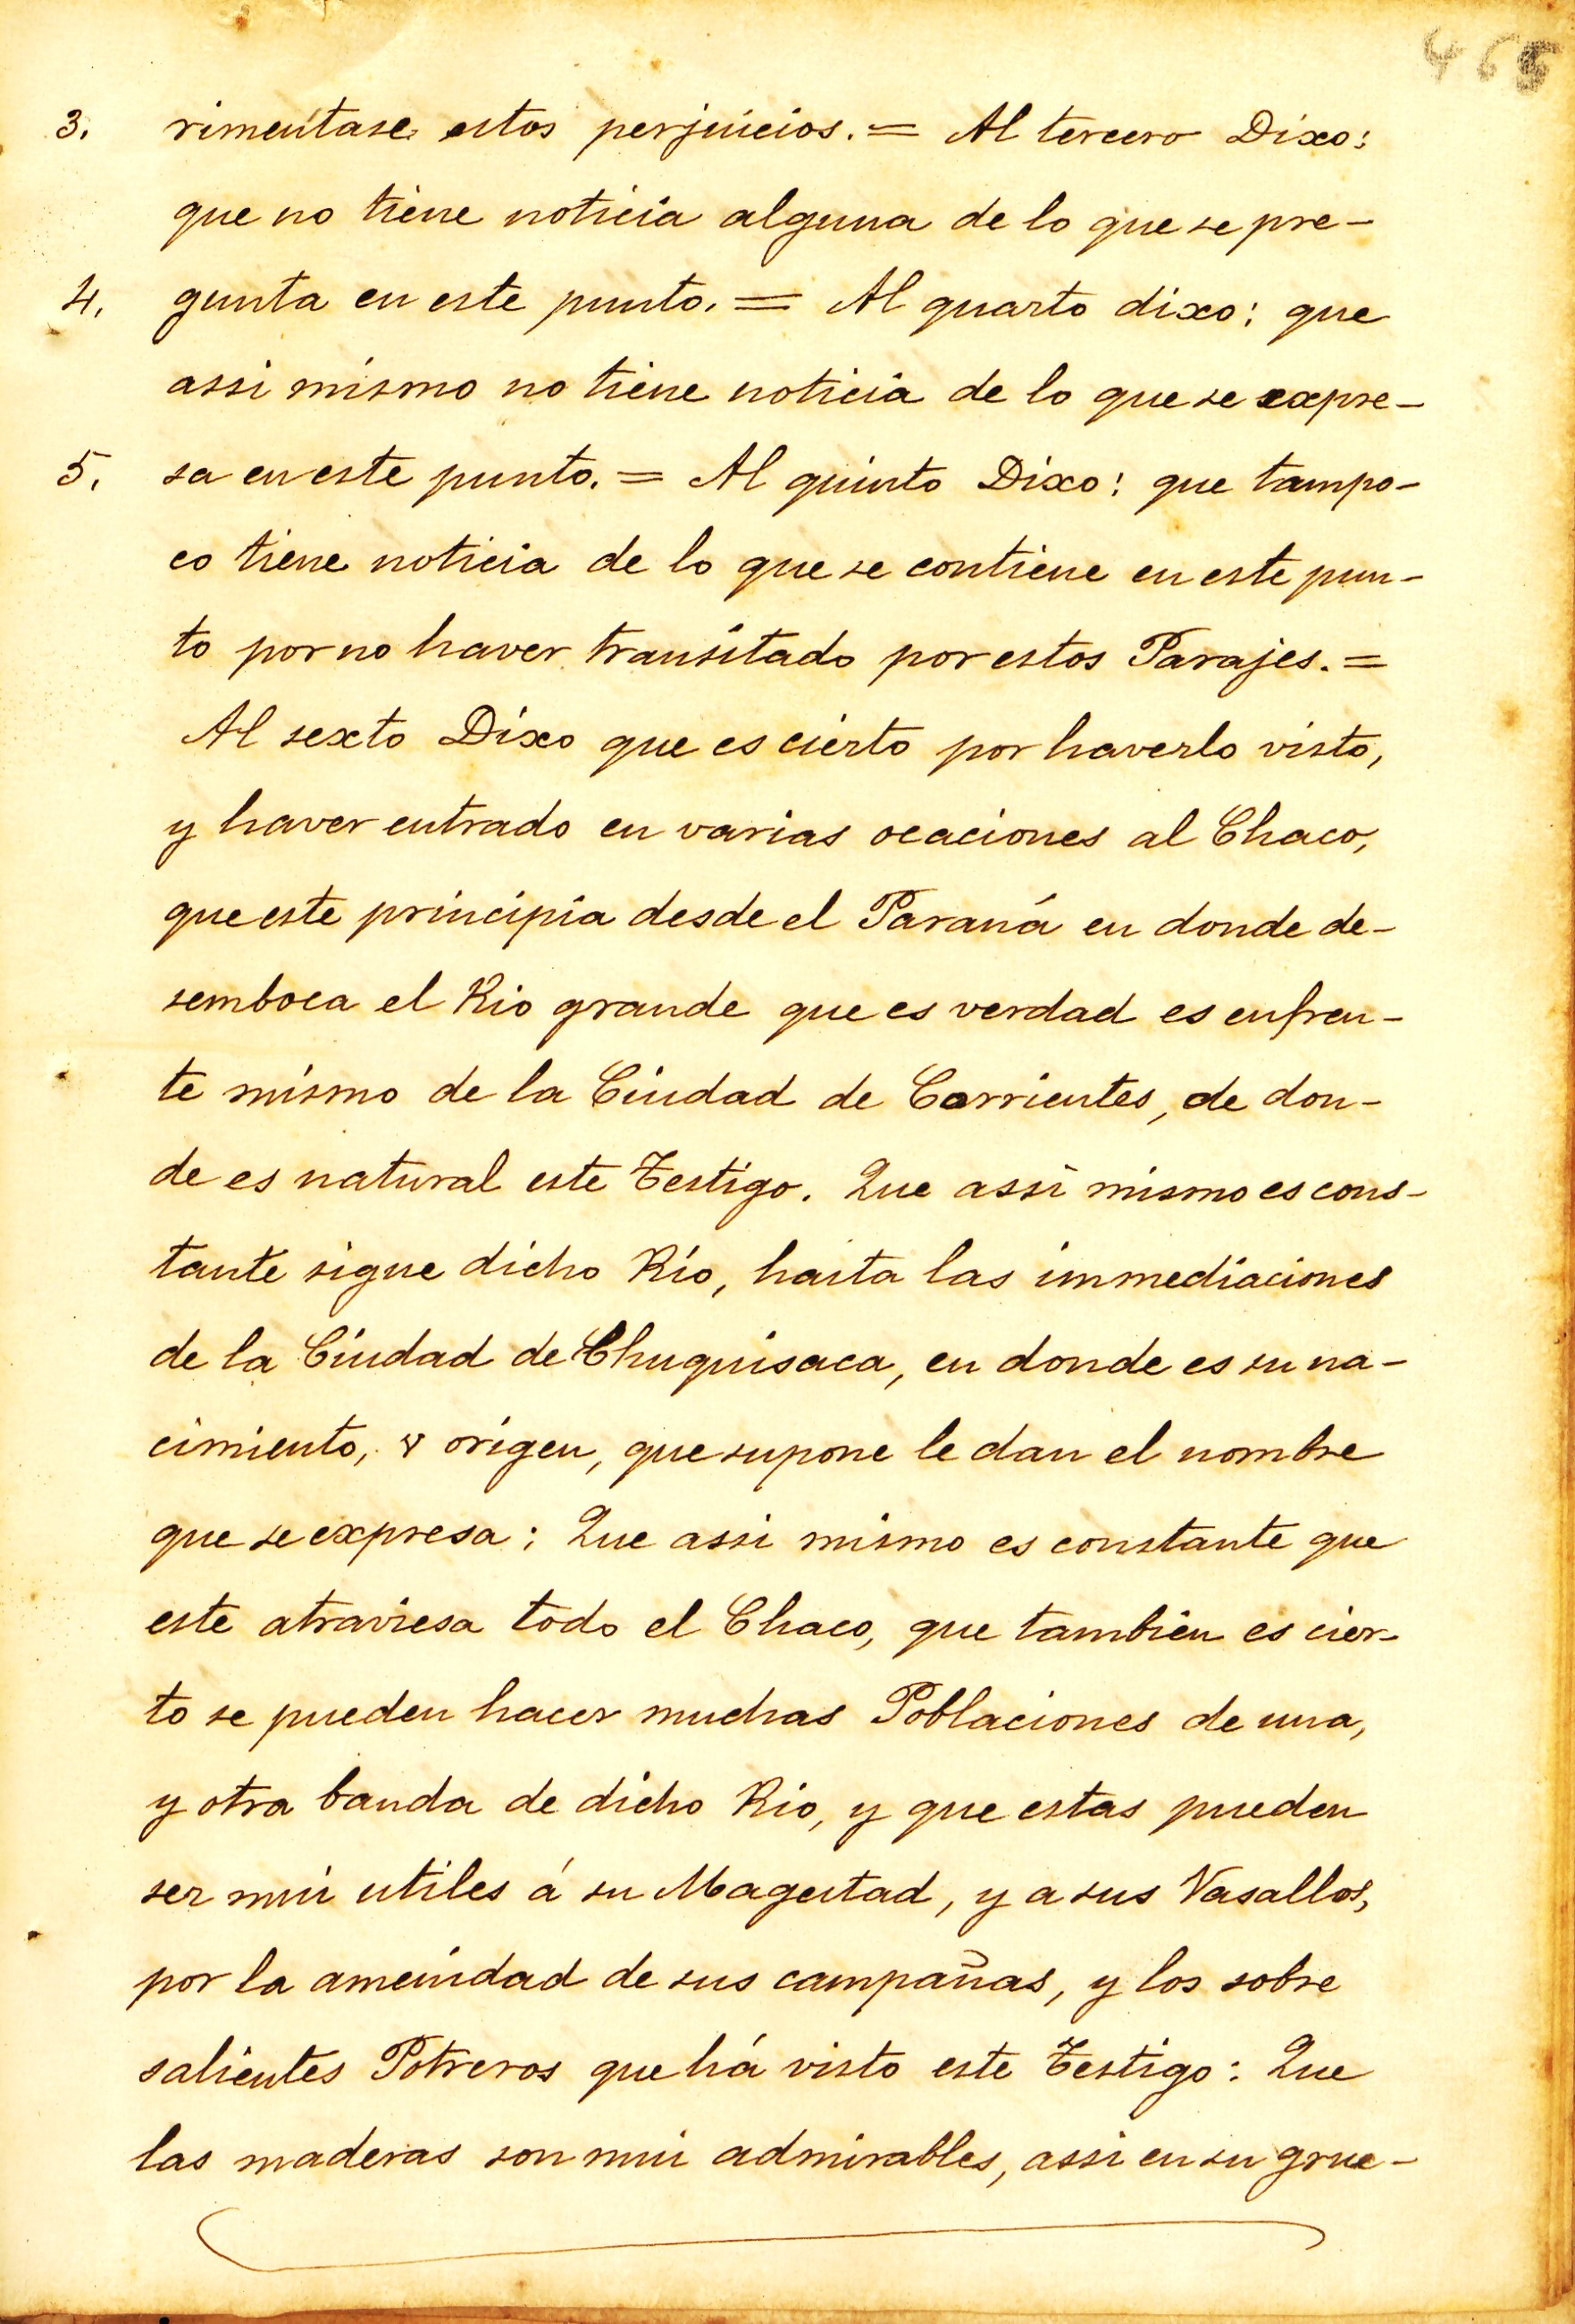 465
3. rimentase estos perjuicios. = Al tercero Dixo:
que no tiene noticia alguna de lo que se pre-
4. gunta en este punto. = Al quarto dixo: que
assi mismo no tiene noticia de lo que se expre-
5. sa en este punto. = Al quinto Dixo: que tampo-
co tiene noticia de lo que se contiene en este pun-
to por no haver transitado por estos Parajes. =
Al sexto Dixo que es cierto por haverlo visto,
y haver entrado en varias ocaciones al Chaco,
que este principia desde el Paraná en donde de-
semboca el Rio grande que es verdad es enfren-
te mismo de la Ciudad de Corrientes, de don-
de es natural este Testigo. Que assi mismo es cons-
tante sigue dicho Rio, hasta las immediaciones
de la Ciudad de Chuquisaca, en donde es su na-
cimiento, y origen, que supone le dan el nombre
que se expresa; Que assi mismo es constante que
este atraviesa todo el Chaco, que tambien es cier-
to se pueden hacer muchas Poblaciones de una,
y otra banda de dicho Rio, y que estas pueden
ser mui utiles á su Magestad, y a sus Vasallos,
por la amenidad de sus campañas, y los sobre
salientes Potreros que há visto este Testigo: Que
las maderas son mui admirables, assi en su grue-